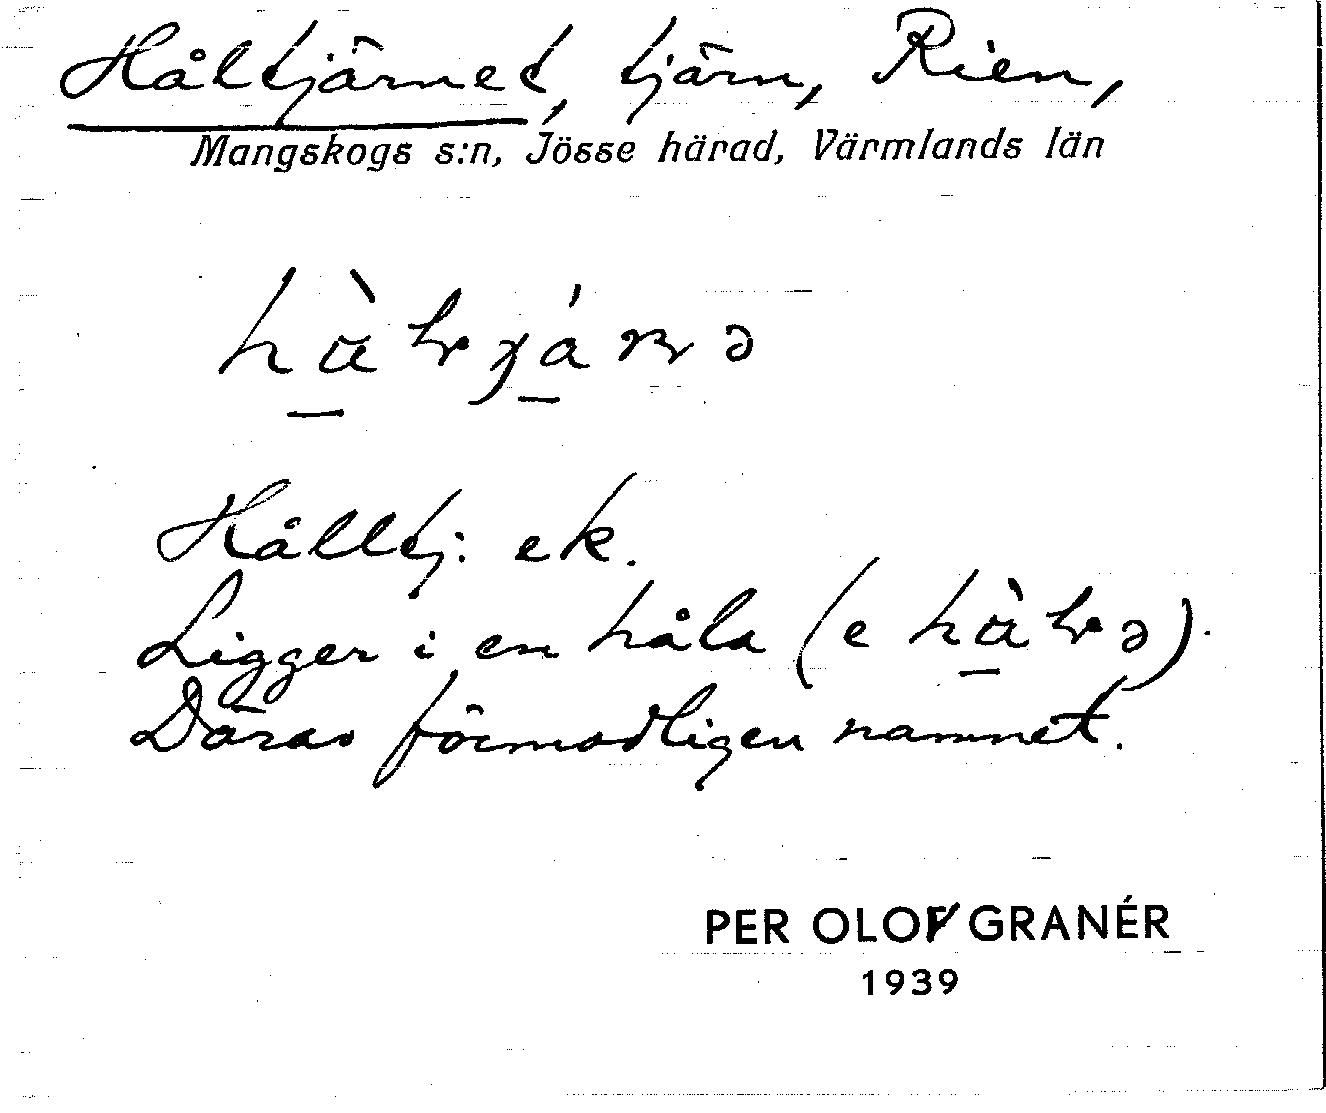 Håltjärnet, tjärn, Rien,
Mangskogs s:n, Jösse härad, Värmlands län
Hålltj: ek.
Ligger i en håla (e
Därav förmodligen namnet.
PER OLOF GRANÉR
1939